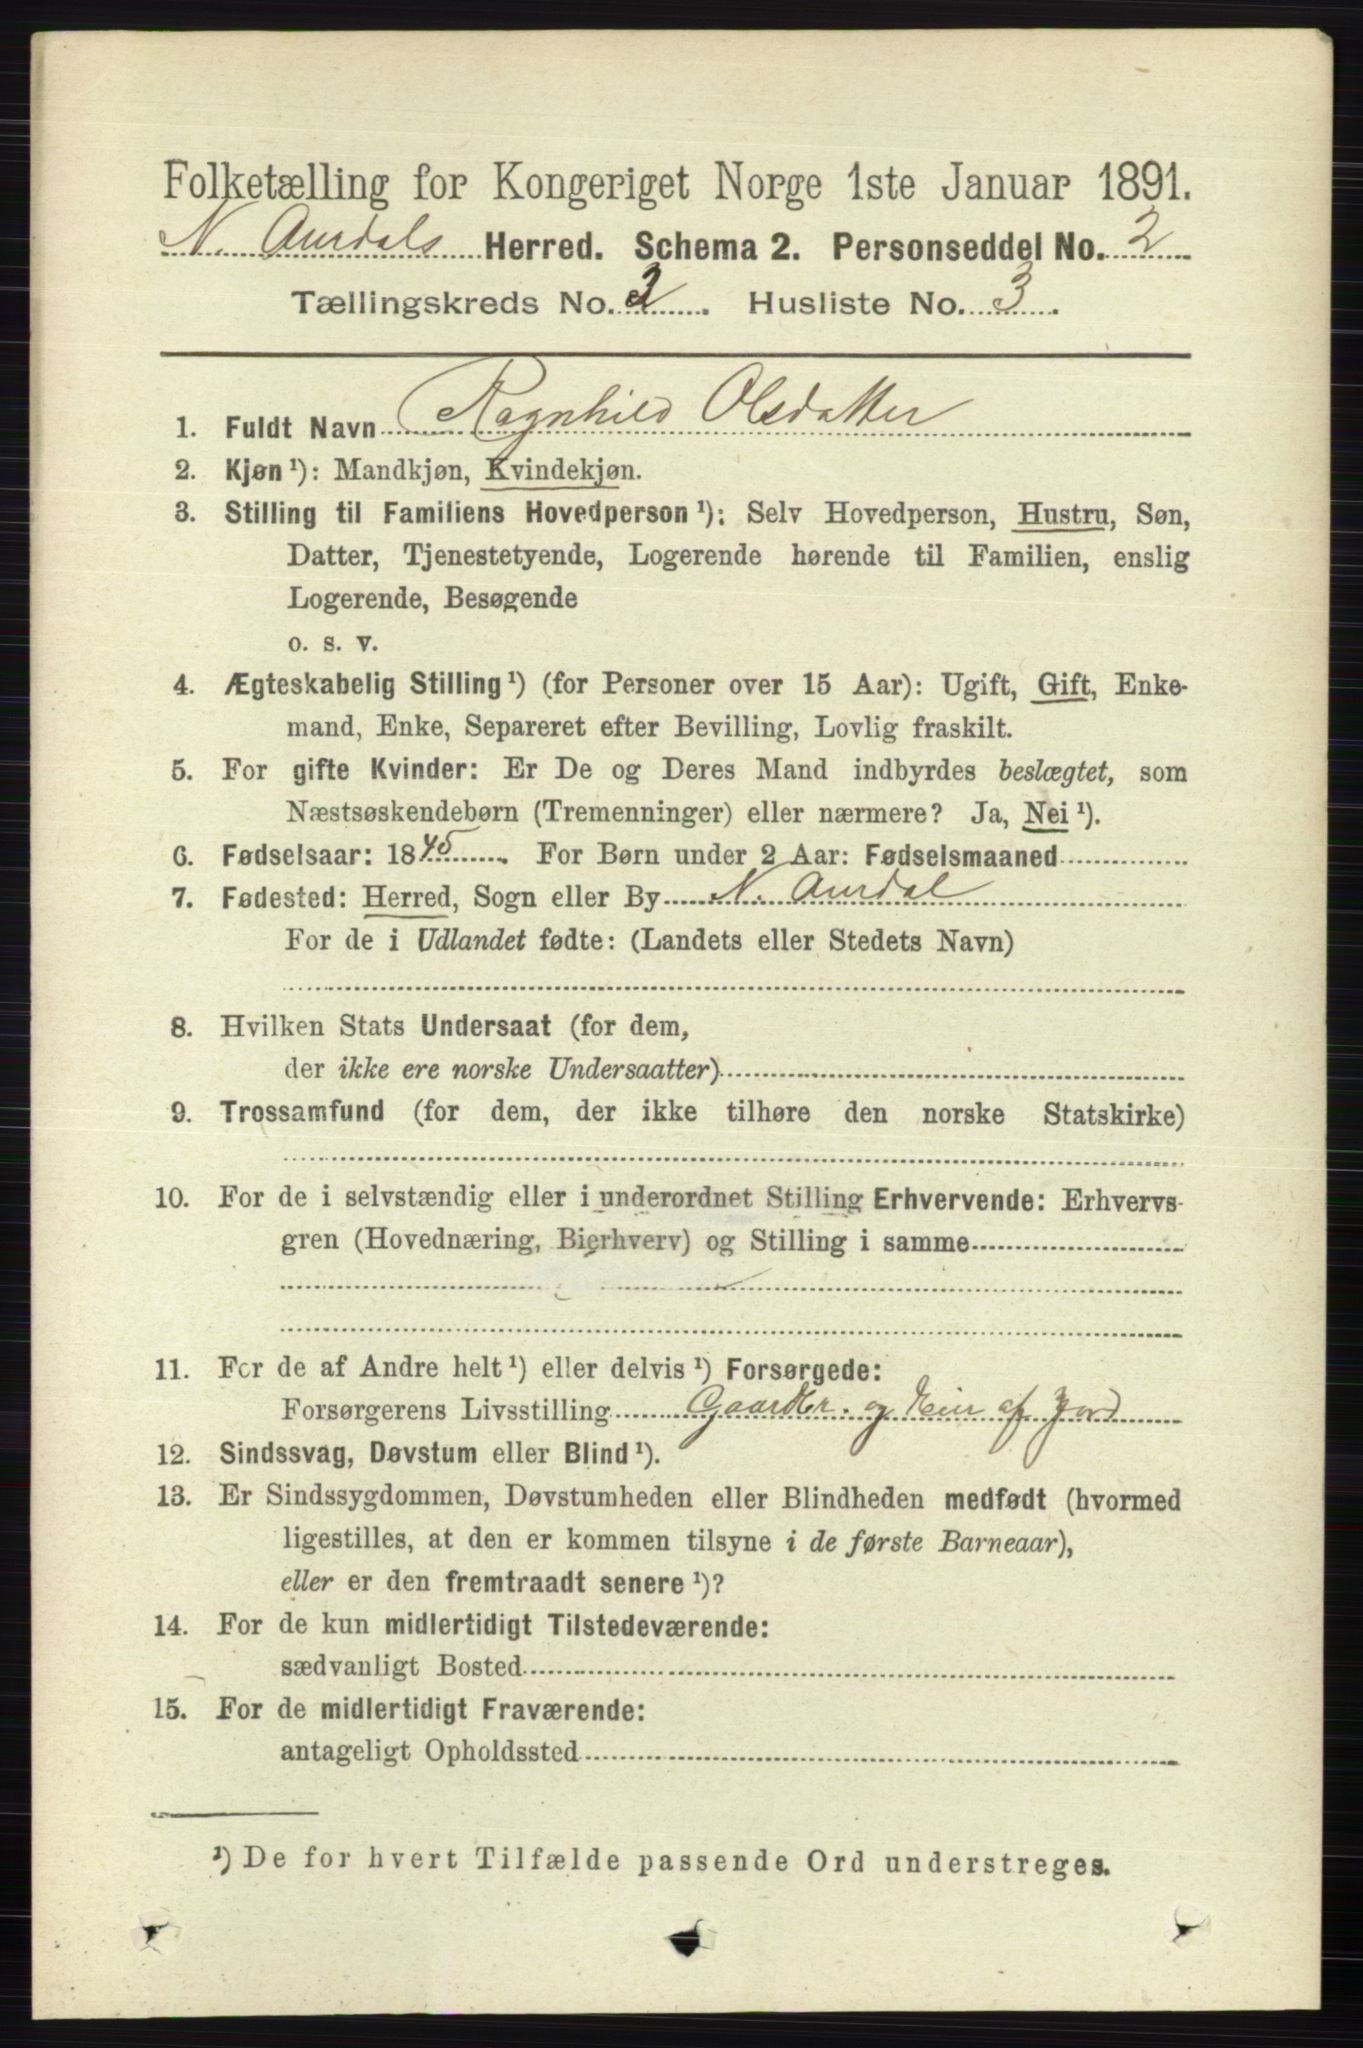 Folketælling for Kongeriget Norge 1ste Januar 1891.
N. Aurdals Herred. Schema 2. Personseddel No. 2
Tællingskreds No. 2. Husliste No. 3.
1. Fuldt Navn Ragnhild Olsdatter
2. Kjøn ¹): Mandkjøn, Kvindekjøn.
3. Stilling til Familiens Hovedperson ¹): Selv Hovedperson, Hustru, Søn,
Datter, Tjenestetyende, Logerende hørende til Familien, enslig
Logerende, Besøgende
o. s. v.
4. Ægteskabelig Stilling ¹) (for Personer over 15 Aar): Ugift, Gift, Enke-
mand, Enke, Separeret efter Bevilling, Lovlig fraskilt.
5. For gifte Kvinder: Er De og Deres Mand indbyrdes beslægtet, som
Næstsøskendebørn (Tremenninger) eller nærmere? Ja, Nei ¹).
6. Fødselsaar: 1845. For Børn under 2 Aar: Fødselsmaaned
7. Fødested: Herred, Sogn eller By N. Aurdal
For de i Udlandet fødte: (Landets eller Stedets Navn)
8. Hvilken Stats Undersaat (for dem,
der ikke ere norske Undersaatter)
9. Trossamfund (for dem, der ikke tilhøre den norske Statskirke)
10. For de i selvstændig eller i underordnet Stilling Erhvervende: Erhvervs-
gren (Hovednæring, Bierhverv) og Stilling i samme
11. For de af Andre helt ¹) eller delvis ¹) Forsørgede:
Forsørgerens Livsstilling Gaardbr. og Eier af Jord
12. Sindssvag, Døvstum eller Blind ¹).
13. Er Sindssygdommen, Døvstumheden eller Blindheden medfødt (hvormed
ligestilles, at den er kommen tilsyne i de første Barneaar),
eller er den fremtraadt senere ¹)?
14. For de kun midlertidigt Tilstedeværende:
sædvanligt Bosted
15. For de midlertidigt Fraværende:
antageligt Opholdssted
¹) De for hvert Tilfælde passende Ord understreges.